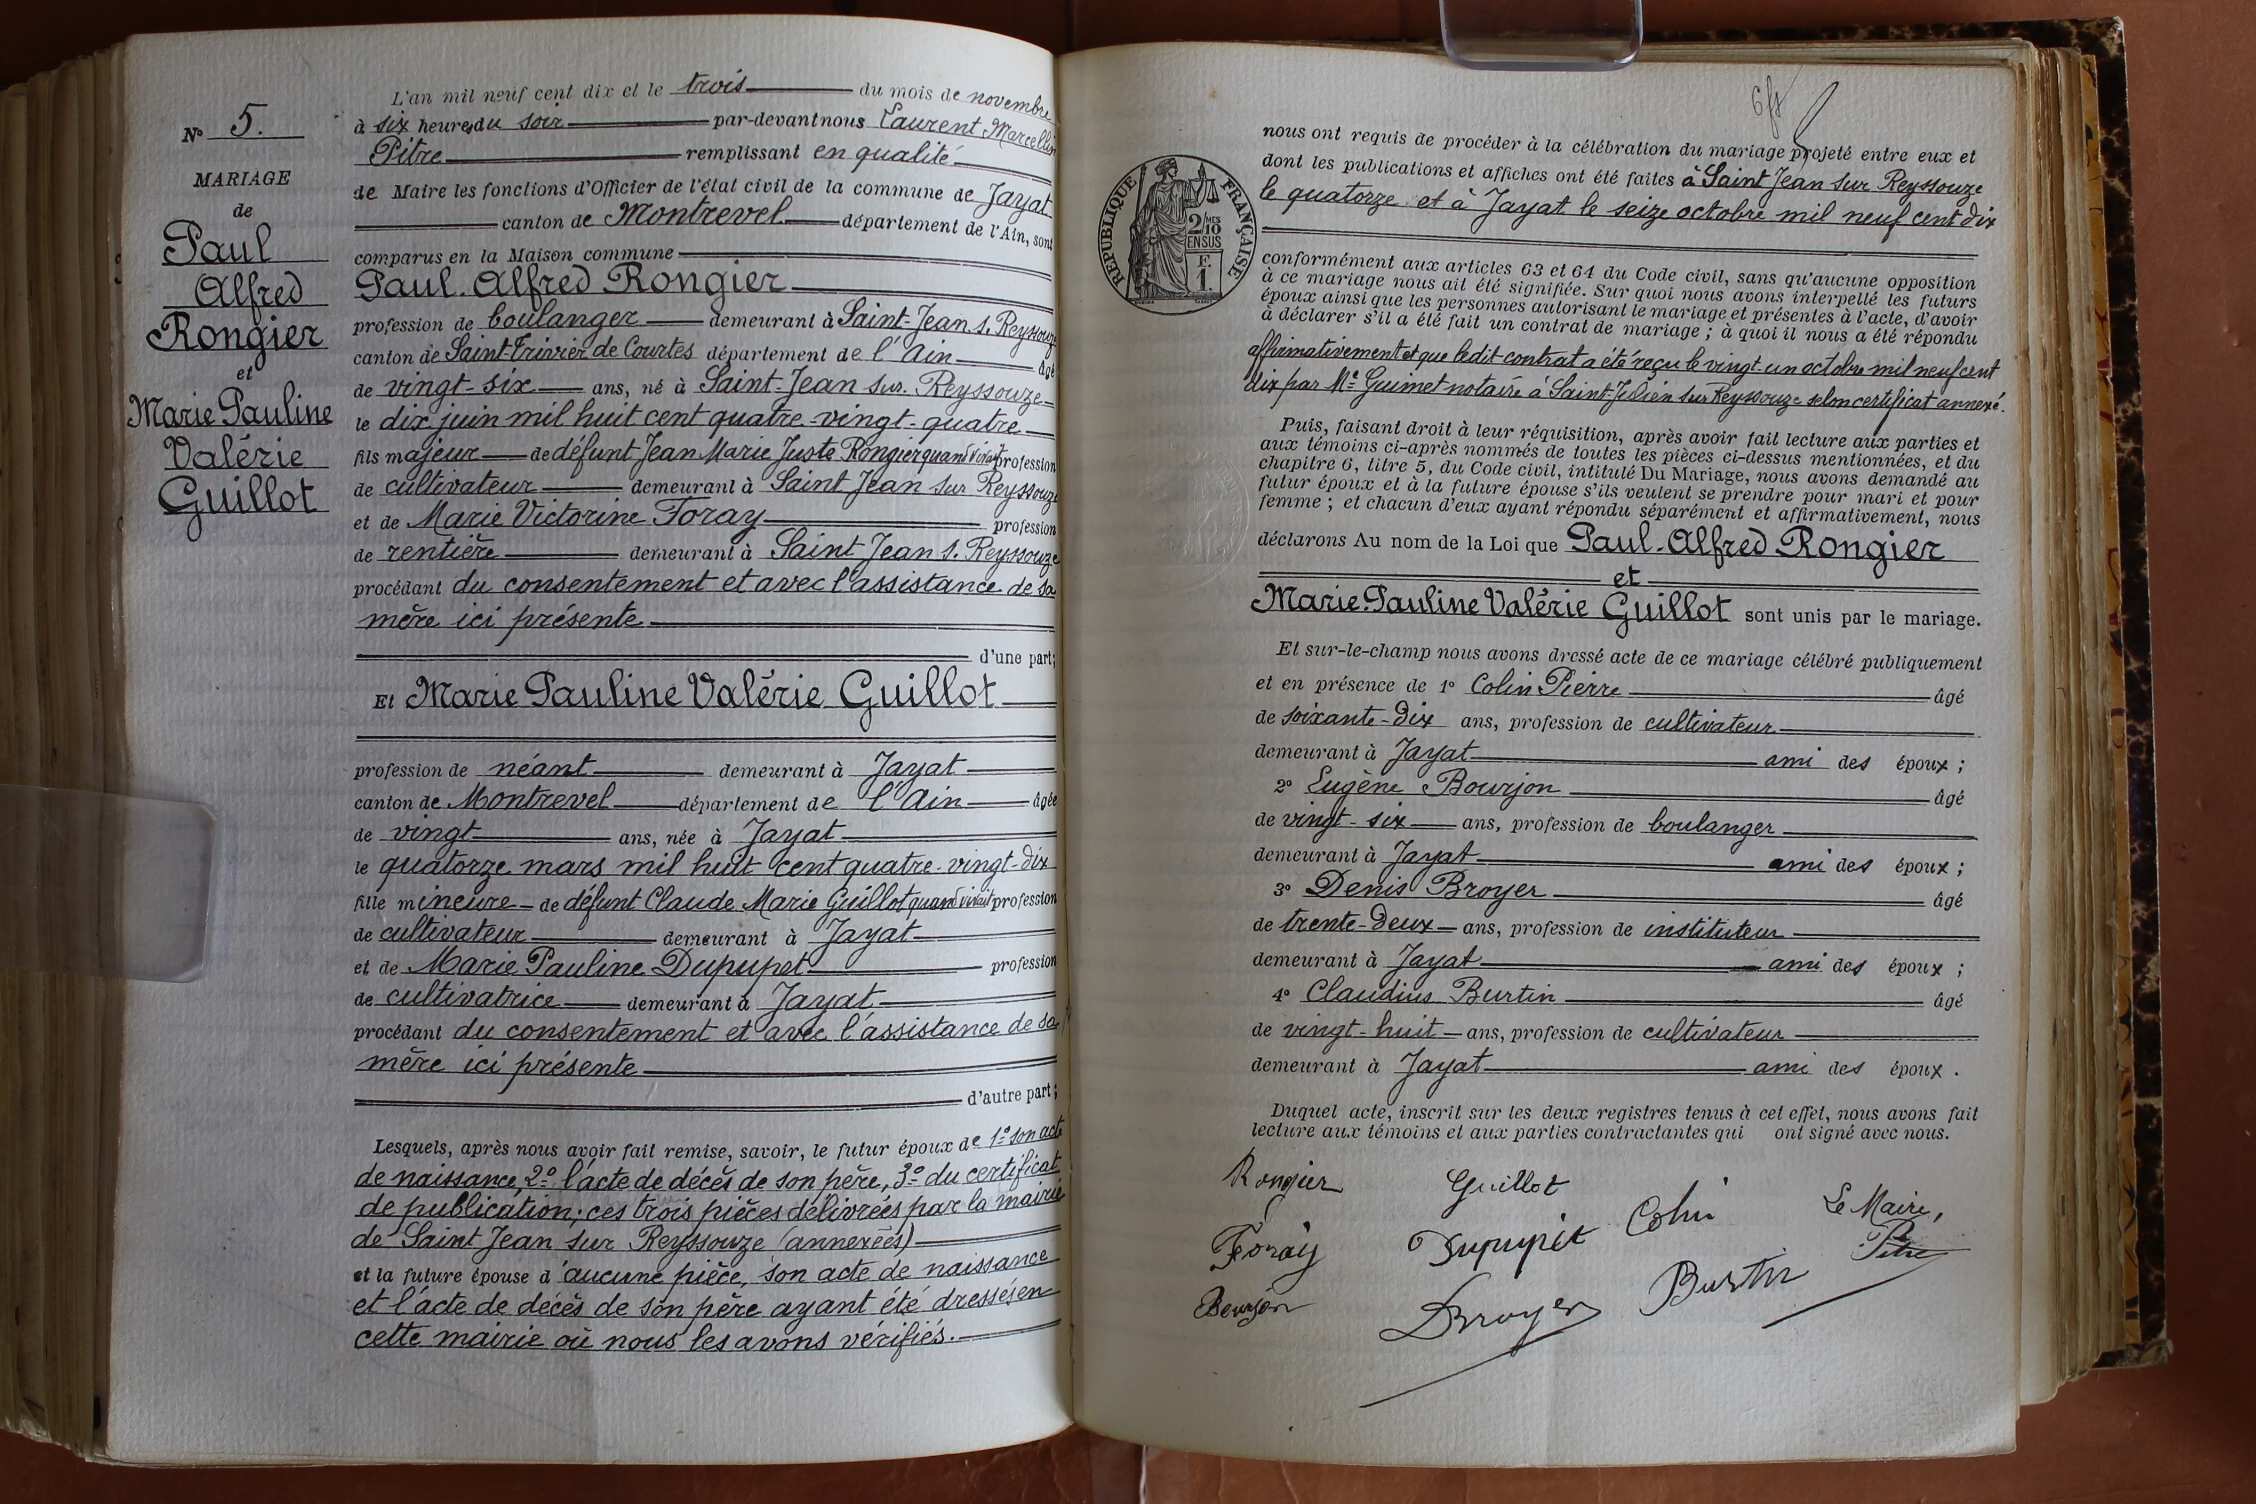 N° 5.
MARIAGE
de
Paul
Alfred
Rongier
et
Marie Pauline
Valérie
Guillot
L'an mil neuf cent dix et le trois du mois de novembre
à six heures du soir par-devant nous Laurent Marcellin
Pitre remplissant en qualité
de Maire les fonctions d'Officier de l'état civil de la commune de Jayat
canton de Montrevel département de l'Ain, sont
comparus en la Maison commune
Paul Alfred Rongier
profession de boulanger demeurant à Saint-Jean s. Reyssouze
canton de Saint-Trivier de Courtes département de l'Ain âgé
de vingt-six ans, né à Saint-Jean sur Reyssouze
le dix juin mil huit cent quatre-vingt-quatre
fils majeur de défunt Jean Marie Juste Rongier quand vivait profession
de cultivateur demeurant à Saint Jean sur Reyssouze
et de Marie Victorine Foray profession
de rentière demeurant à Saint Jean s. Reyssouze
procédant du consentement et avec l'assistance de sa
mère ici présente
d'une part;
Et Marie Pauline Valérie Guillot
profession de néant demeurant à Jayat
canton de Montrevel département de l'Ain âgée
de vingt ans, née à Jayat
le quatorze mars mil huit cent quatre-vingt-dix
fille mineure de défunt Claude Marie Guillot quand vivait profession
de cultivateur demeurant à Jayat
et de Marie Pauline Dupupet profession
de cultivatrice demeurant à Jayat
procédant du consentement et avec l'assistance de sa
mère ici présente
d'autre part;
Lesquels, après nous avoir fait remise, savoir, le futur époux de 1° son acte
de naissance, 2° l'acte de décès de son père, 3° du certificat
de publication; ces trois pièces délivrées par la mairie
de Saint Jean sur Reyssouze (annexées)
et la future épouse d'aucune pièce, son acte de naissance
et l'acte de décès de son père ayant été dressés en
cette mairie où nous les avons vérifiés.
RÉPUBLIQUE FRANÇAISE
2/10
EN SUS
F.
1.
nous ont requis de procéder à la célébration du mariage projeté entre eux et
dont les publications et affiches ont été faites à Saint Jean sur Reyssouze
le quatorze et à Jayat le seize octobre mil neuf cent dix
conformément aux articles 63 et 64 du Code civil, sans qu'aucune opposition
à ce mariage nous ait été signifiée. Sur quoi nous avons interpellé les futurs
époux ainsi que les personnes autorisant le mariage et présentes à l'acte, d'avoir
à déclarer s'il a été fait un contrat de mariage; à quoi il nous a été répondu
affirmativement et que ledit contrat a été reçu le vingt-un octobre mil neuf cent
dix par Me Guimet notaire à Saint-Julien sur Reyssouze selon certificat annexé.
Puis, faisant droit à leur réquisition, après avoir fait lecture aux parties et
aux témoins ci-après nommés de toutes les pièces ci-dessus mentionnées, et du
chapitre 6, titre 5, du Code civil, intitulé Du Mariage, nous avons demandé au
futur époux et à la future épouse s'ils veulent se prendre pour mari et pour
femme; et chacun d'eux ayant répondu séparément et affirmativement, nous
déclarons Au nom de la Loi que Paul-Alfred Rongier
et
Marie-Pauline Valérie Guillot sont unis par le mariage.
Et sur-le-champ nous avons dressé acte de ce mariage célébré publiquement
et en présence de 1° Colin Pierre âgé
de soixante-dix ans, profession de cultivateur
demeurant à Jayat ami des époux;
2° Eugène Bourjon âgé
de vingt-six ans, profession de boulanger
demeurant à Jayat ami des époux;
3° Denis Broyer âgé
de trente-deux ans, profession de instituteur
demeurant à Jayat ami des époux;
4° Claudius Burtin âgé
de vingt-huit ans, profession de cultivateur
demeurant à Jayat ami des époux.
Duquel acte, inscrit sur les deux registres tenus à cet effet, nous avons fait
lecture aux témoins et aux parties contractantes qui ont signé avec nous.
Rongier Guillot
Foray Dupupet Colin Le Maire,
Pitre
Bourjon Broyer Burtin